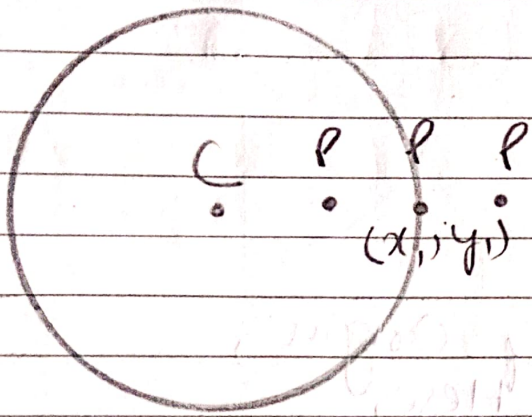 C P P P
(x₁, y₁)